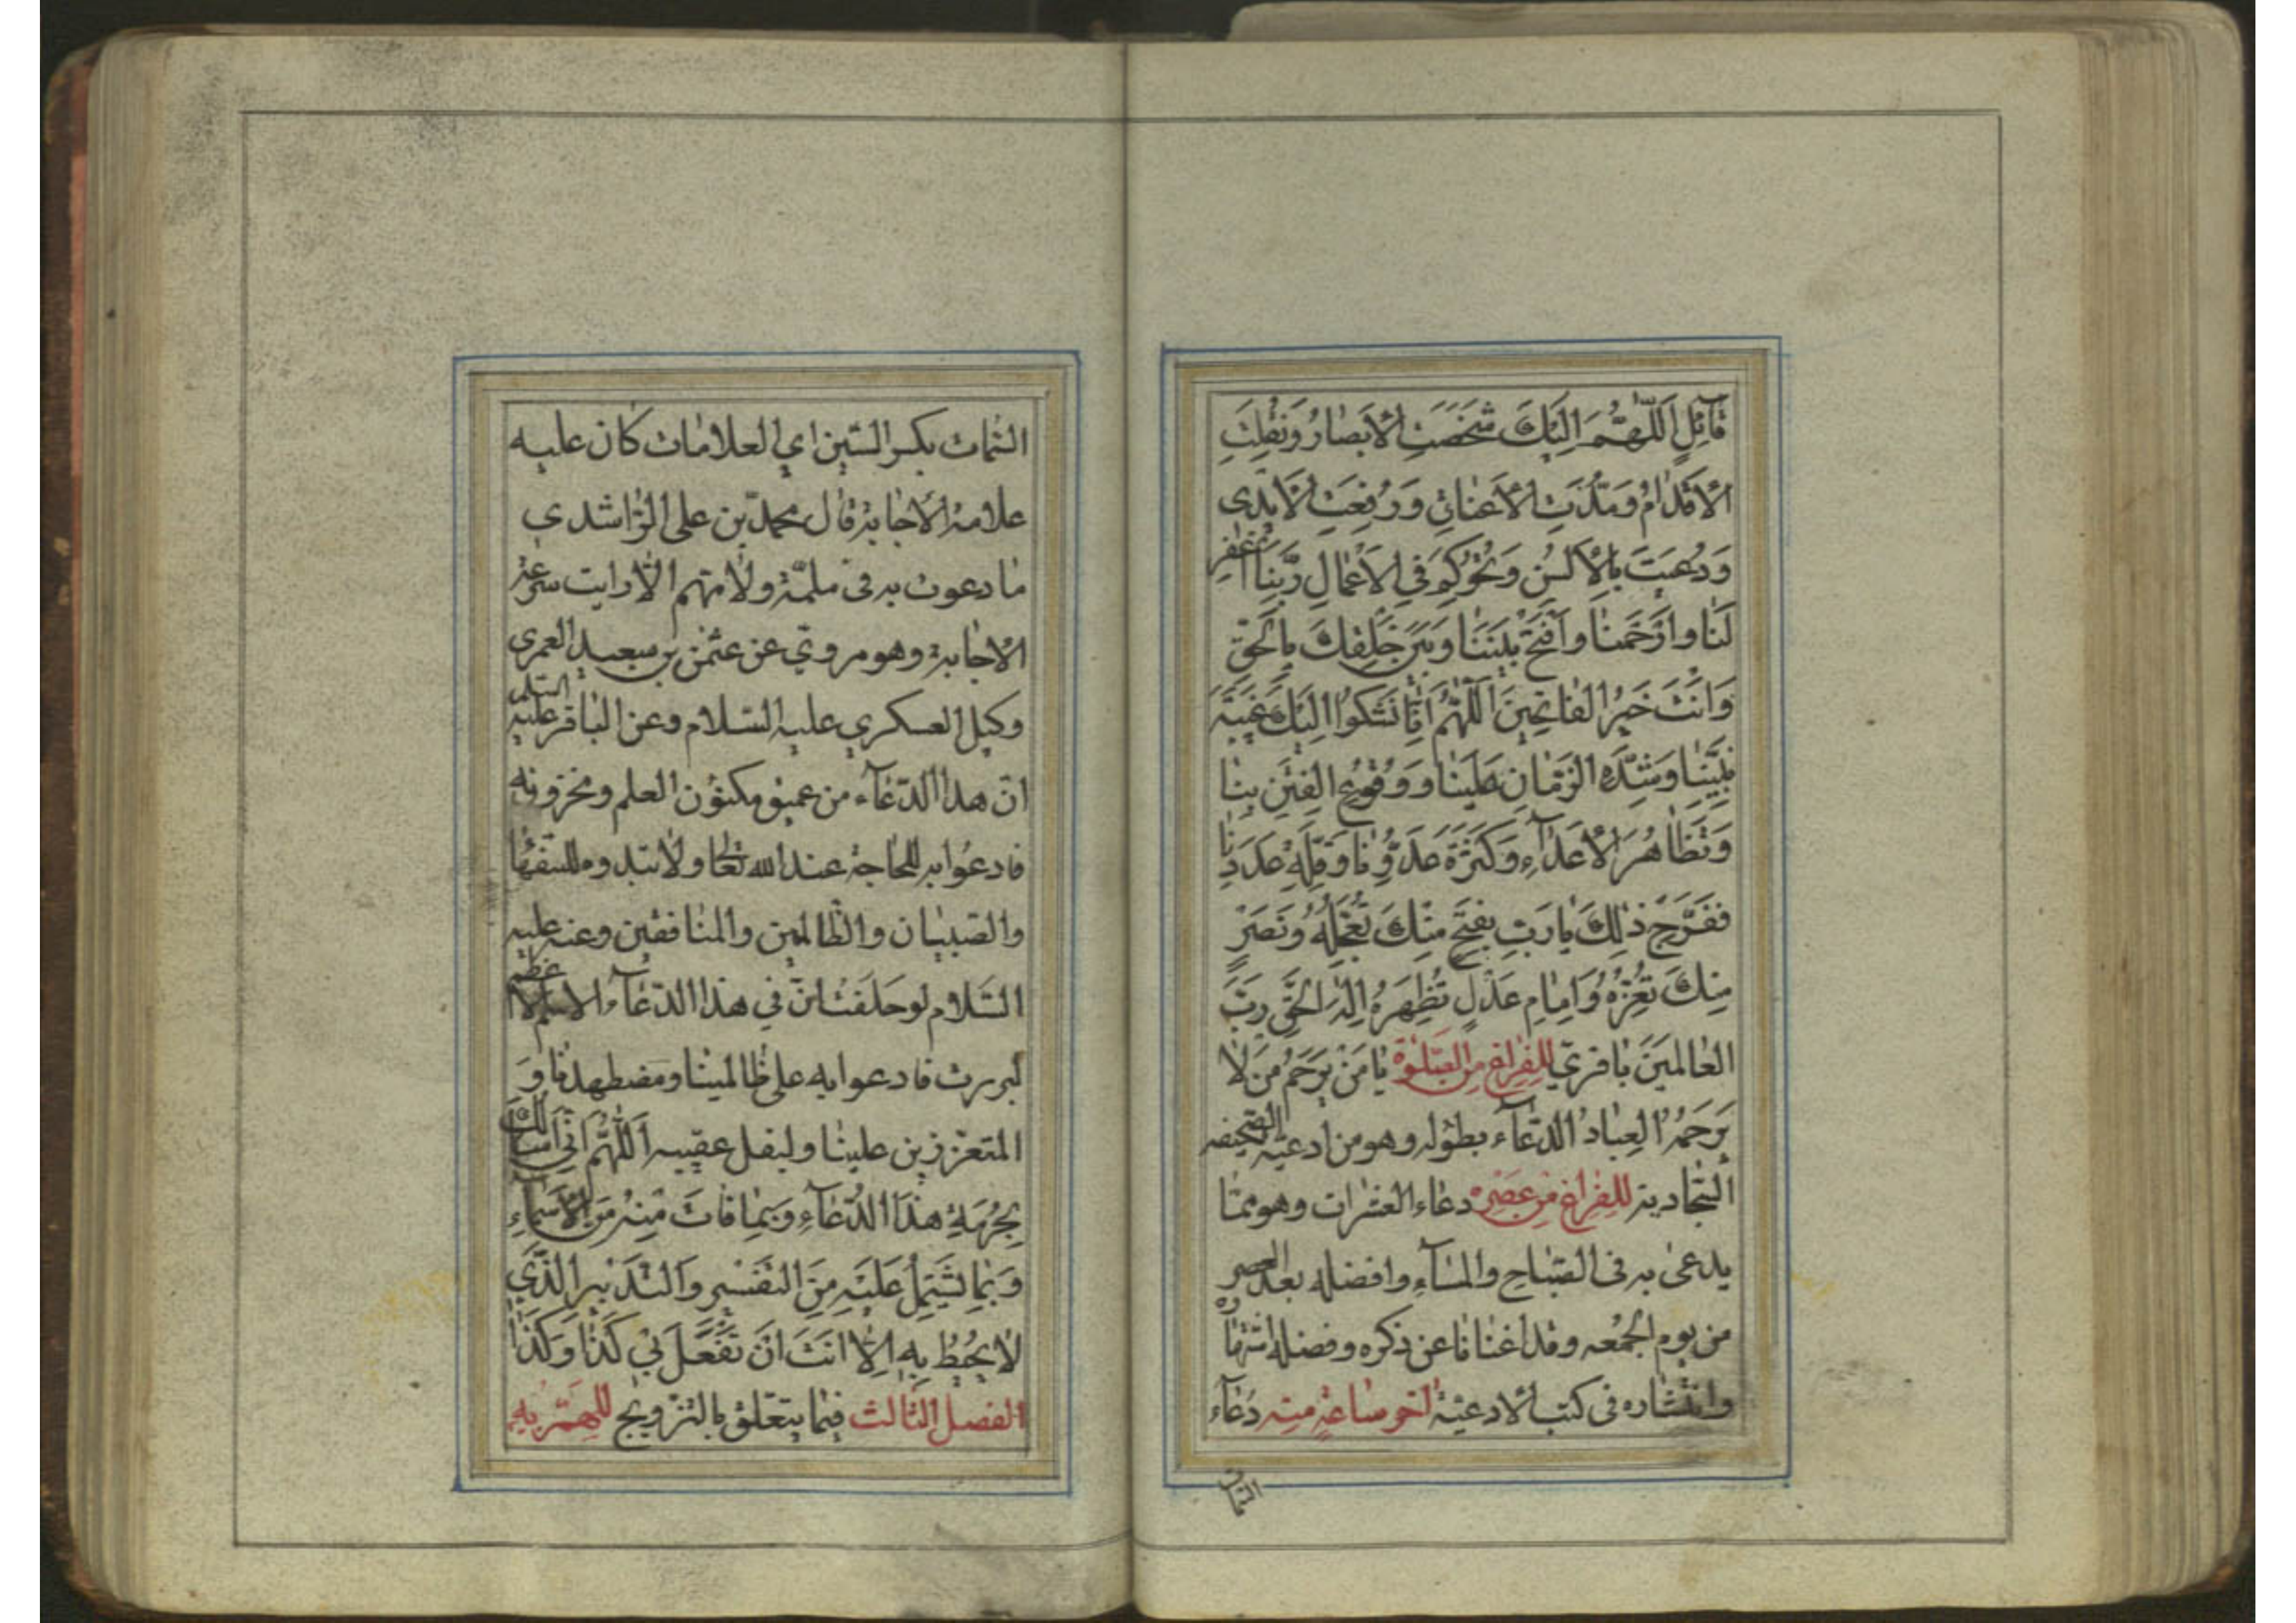 قآئِلٍ اَللّٰهُمَّ اِلَيْكَ شَخَصَتِ الْاَبْصارُ وَنُقِلَتِ
الْاَقْدامُ وَمُدَّتِ الْاَعْناقُ وَرُفِعَتِ الْاَيْدى
وَدُعيتَ بِالْاَلْسُنِ وَتُحُوكِمَ فِى الْاَعْمالِ رَبَّنَا اغْفِرْ
لَنا وَارْحَمْنا وَافْتَحْ بَيْنَنا وَبَيْنَ خَلْقِكَ بِالْحَقِّ
وَاَنْتَ خَيْرُ الْفاتِحينَ اَللّٰهُمَّ اِنّا نَشْكُوا اِلَيْكَ غَيْبَةَ
نَبِيِّنا وَشِدَّةِ الزَّمانِ عَلَيْنا وَوُقُوعِ الْفِتَنِ بِنا
وَتَظاهُرَ الْاَعْدآءِ وَكَثْرَةَ عَدُوِّنا وَقِلَّةِ عَدَدِنا
فَفَرِّجْ ذٰلِكَ يا رَبِّ بِفَتْحٍ مِنْكَ تُعَجِّلُهُ وَنَصْرٍ
مِنْكَ تُعِزُّهُ وَاِمامِ عَدْلٍ تُظْهِرُهُ اِلٰهَ الْحَقِّ رَبَّ
الْعالَمينَ باقرىّ للفراغ من الصّلوٰة يا مَنْ يَرْحَمُ مَنْ لا
يَرْحَمُهُ الْعِبادُ الدّعآء بطوله وهو من ادعية الصّحيفه
السّجادية للفراغ من عصره دعاء العشرات وهو ممّا
يدعى به فى الصّباح والمسآء وافضله بعد العصر
من يوم الجمعه وقد اغنانا عن ذكره وفضله اشتهاره
وانتشاره فى كتب الادعية لاخر ساعة منه دعآء
السّمات
السّمات بكسر السّين اي العلامات كان عليه
علامة الاجابة قال محمدّ بن على الرّاشدي
ما دعوت به فى ملمّة ولا مهمّ الّا رايت سرعة
الاجابة وهو مروىّ عن عثمٰن بن سعيد العمرى
وكيل العسكري عليه السّلام وعن الباقر عليه السّلم
انّ هذا الدّعآء من عميق مكنون العلم ومخزونه
فادعوا به للحاجة عند الله تعالى ولا تبدوه للسّفهآ
والصّبيان والظّالمين والمنافقين وعنه عليه
السّلام لو حلفت انّ في هذا الدّعآء الاسم الاعظم
لبررت فادعوا به على ظالمينا ومضطهدنا و
المتعزّزين علينا وليقل عقيبه اَللّٰهُمَّ اِنّى اَسْئَلُكَ
بِحُرْمَةِ هٰذَا الدُّعآءِ وَبِما فاتَ مِنْهُ مِنَ الْاَسْمآءِ
وَبِما يَشْتَمِلُ عَلَيْهِ مِنَ التَّفْسيرِ وَالتَّدْبيرِ الَّذى
لا يُحيطُ بِهِ اِلّا اَنْتَ اَنْ تَفْعَلَ بى كَذا وَكَذا
الفصل الثّالث فيما يتعلّق بالتّزويج للهمّ به